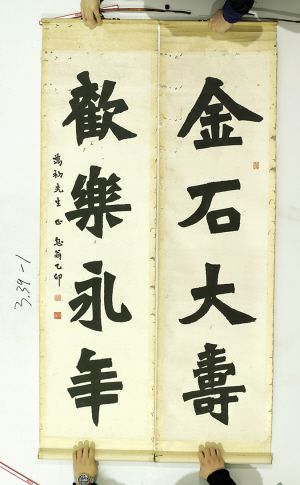 金石大壽
歡樂永年
万初先生正 息翁乙卯
3.39-1